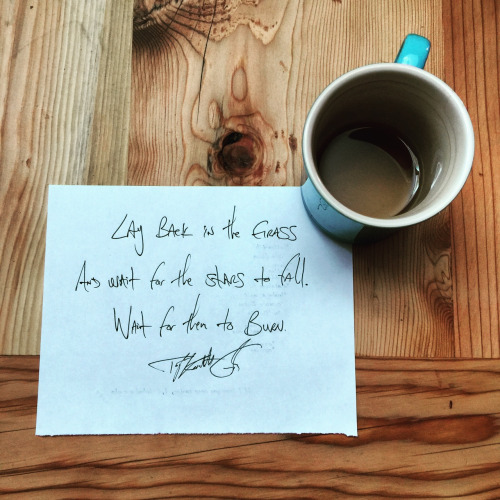 LAY BACK in the GRASS
AND WAIT for the STARS to fAll.
WAIT for them to BURN.